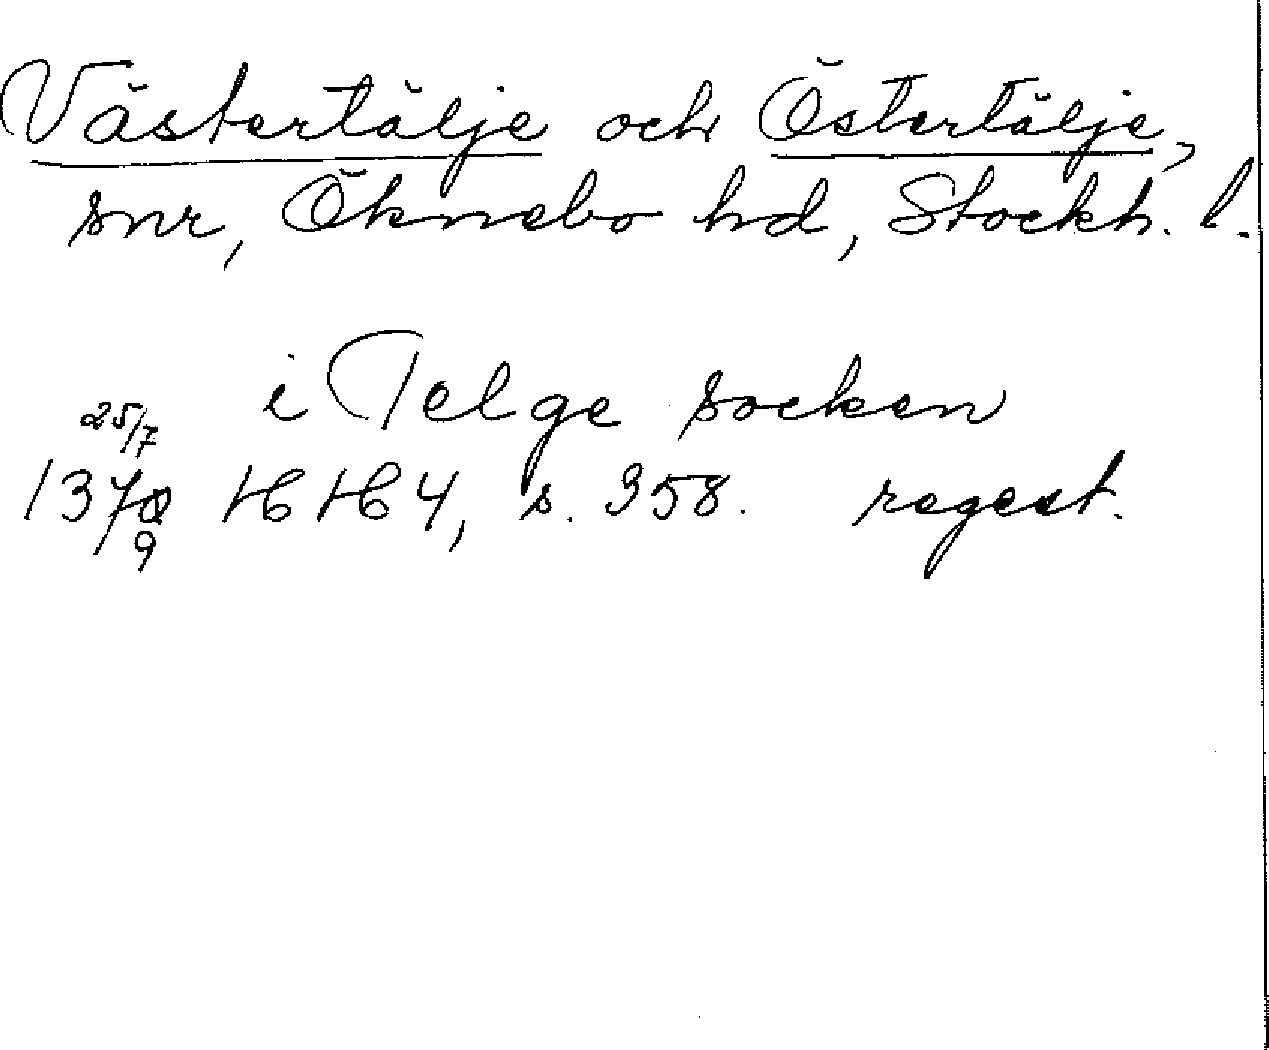 Västertälje och Östertälje,
snr, Öknebo hd, Stockh. l.
i Telge socken
25/7
1379 HH 4, s. 358. regest.